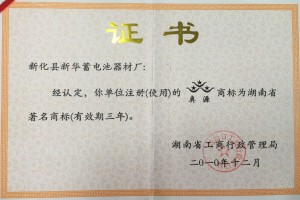 证书
新化县新华蓄电池器材厂:
经认定，你单位注册(使用)的 真源 商标为湖南省
著名商标(有效期三年)。
湖南省工商行政管理局
二〇一〇年十二月